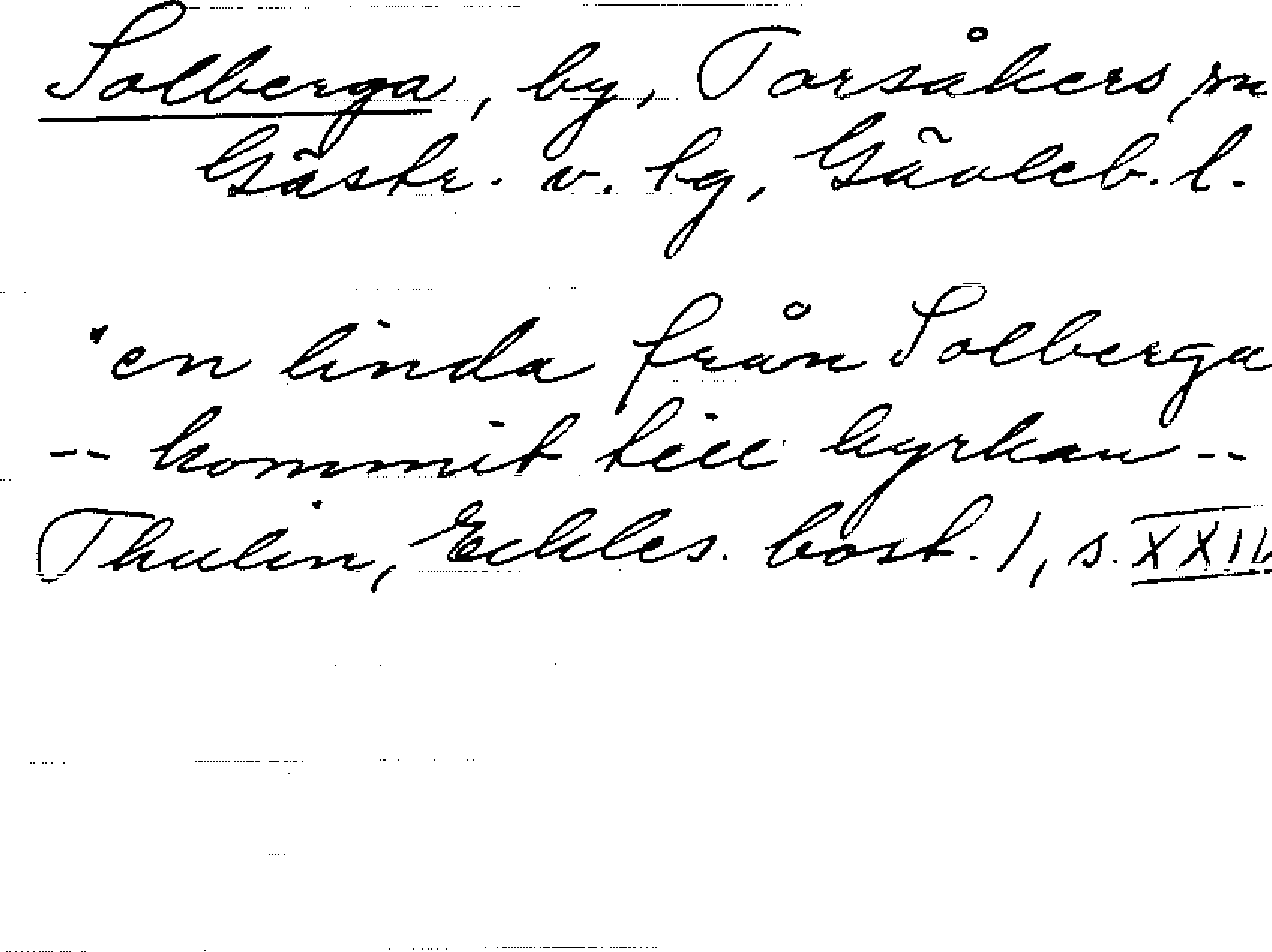 Solberga, by, Torsåkers sn
Gästr. v. tg, Gävleb. l.
"en linda från Solberga
-- kommit till kyrkan --
Thulin, Eckles. bost. 1, s.